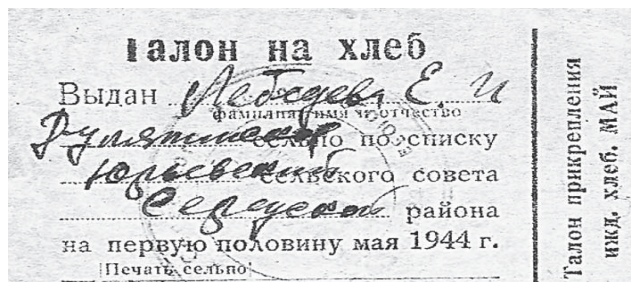 Талон на хлеб
Выдан Лебедева Е. И
фамилия имя и отчество
сельпо по списку
Юрьевский сельского совета
района
на первую половину мая 1944 г.
Печать сельпо
Талон прикрепления
ижд. хлеб. МАЙ